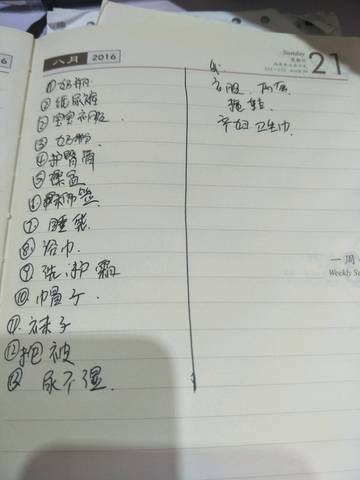 八月 2016
①奶瓶
②纸尿裤
②宝宝衣服
③奶粉
④护臀膏
⑤澡盆
⑦睡袋
⑧浴巾
⑨洗护霜
⑩帽子
⑪袜子
⑫抱被
⑬尿不湿
Sunday
星期日
21
衣服
拖鞋
产妇卫生巾
一周
Weekly